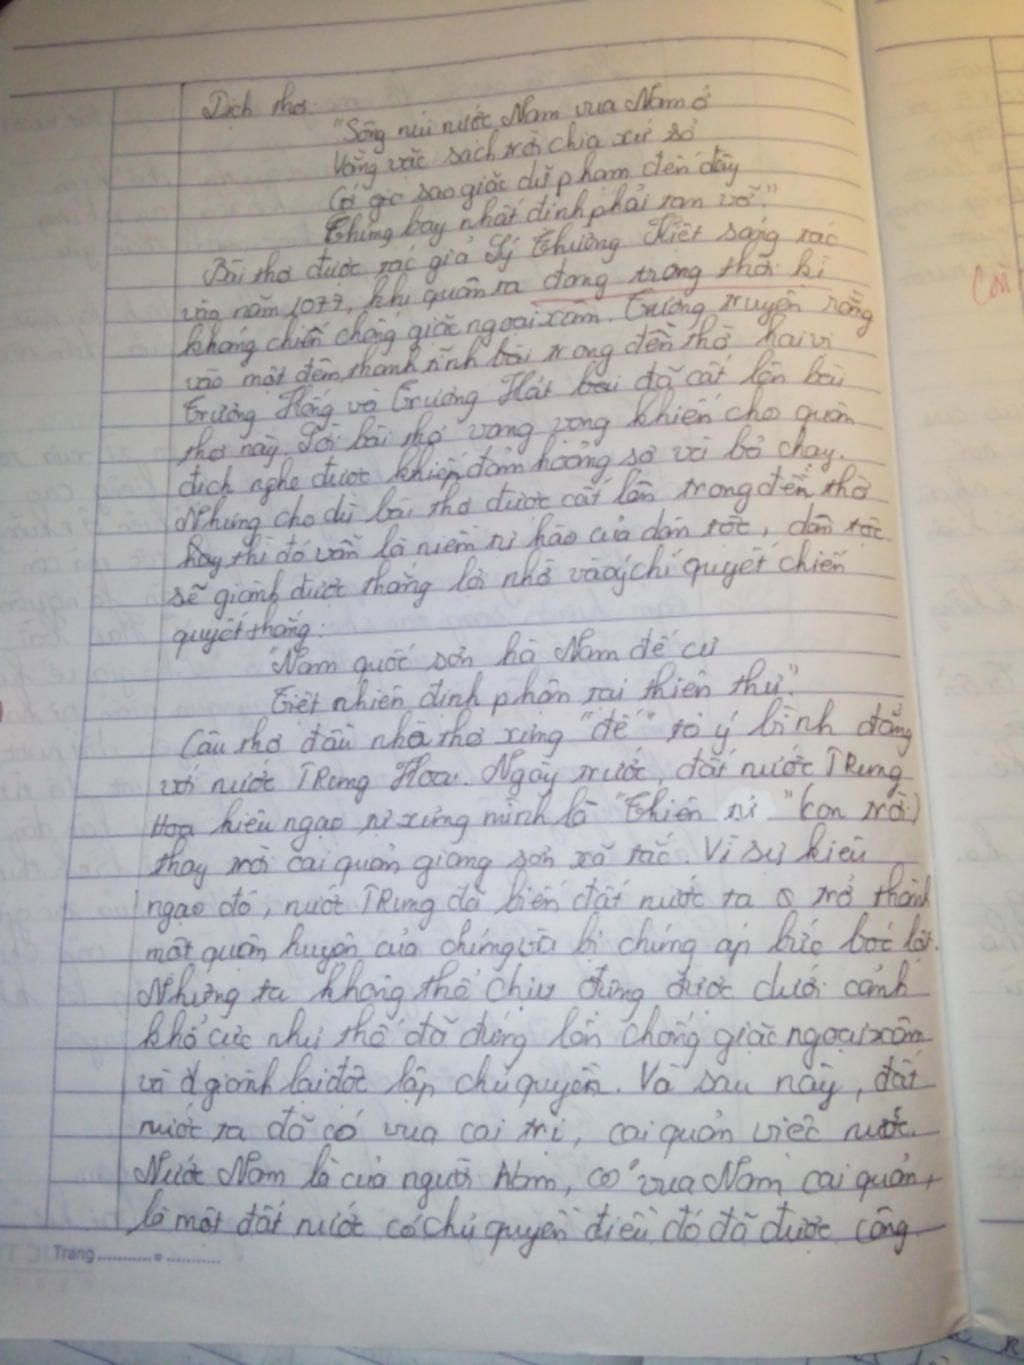 Dịch thơ:
"Sông núi nước Nam vua Nam ở
Vằng vặc sách trời chia xứ sở
Cớ gì sao giặc dữ phạm đến đây
Chúng bay nhất định phải tan vỡ."
Bài thơ được tác giả Lý Thường Kiệt sáng tác
vào năm 1077, khi quân ta đang trong thời kì
kháng chiến chống giặc ngoại xâm. Tương truyền rằng
vào một đêm thanh tĩnh bài trong đền thờ hai vị
Trương Hống và Trương Hát bài đã cất lên bài
thơ này. Lời bài thơ vang vọng khiến cho quân
địch nghe được khiếp đảm hoảng sợ và bỏ chạy.
Nhưng cho dù bài thơ được cất lên trong đền thờ
hay thì đó vẫn là niềm tự hào của dân tộc, dân tộc
sẽ giành được thắng lợi nhờ vào ý chí quyết chiến
quyết thắng:
"Nam quốc sơn hà Nam đế cư
Tiệt nhiên định phận tại thiên thư."
Câu thơ đầu nhà thơ xưng "đế" tỏ ý bình đẳng
với nước TRung Hoa. Ngày trước, đất nước TRung
Hoa kiêu ngạo tự xưng mình là "Thiên tử" (con trời)
thay trời cai quản giang sơn xã tắc. Vì sự kiêu
ngạo đó, nước TRung đã biến đất nước ta trở thành
một quận huyện của chúng và bị chúng áp bức bóc lột.
Nhưng ta không thể chịu đựng được dưới cảnh
khổ cực như thế đã đứng lên chống giặc ngoại xâm
và giành lại độc lập chủ quyền. Và sau này, đất
nước ta đã có vua cai trị, cai quản việc nước.
Nước Nam là của người Nam, có vua Nam cai quản,
là một đất nước có chủ quyền điều đó đã được công
Trang